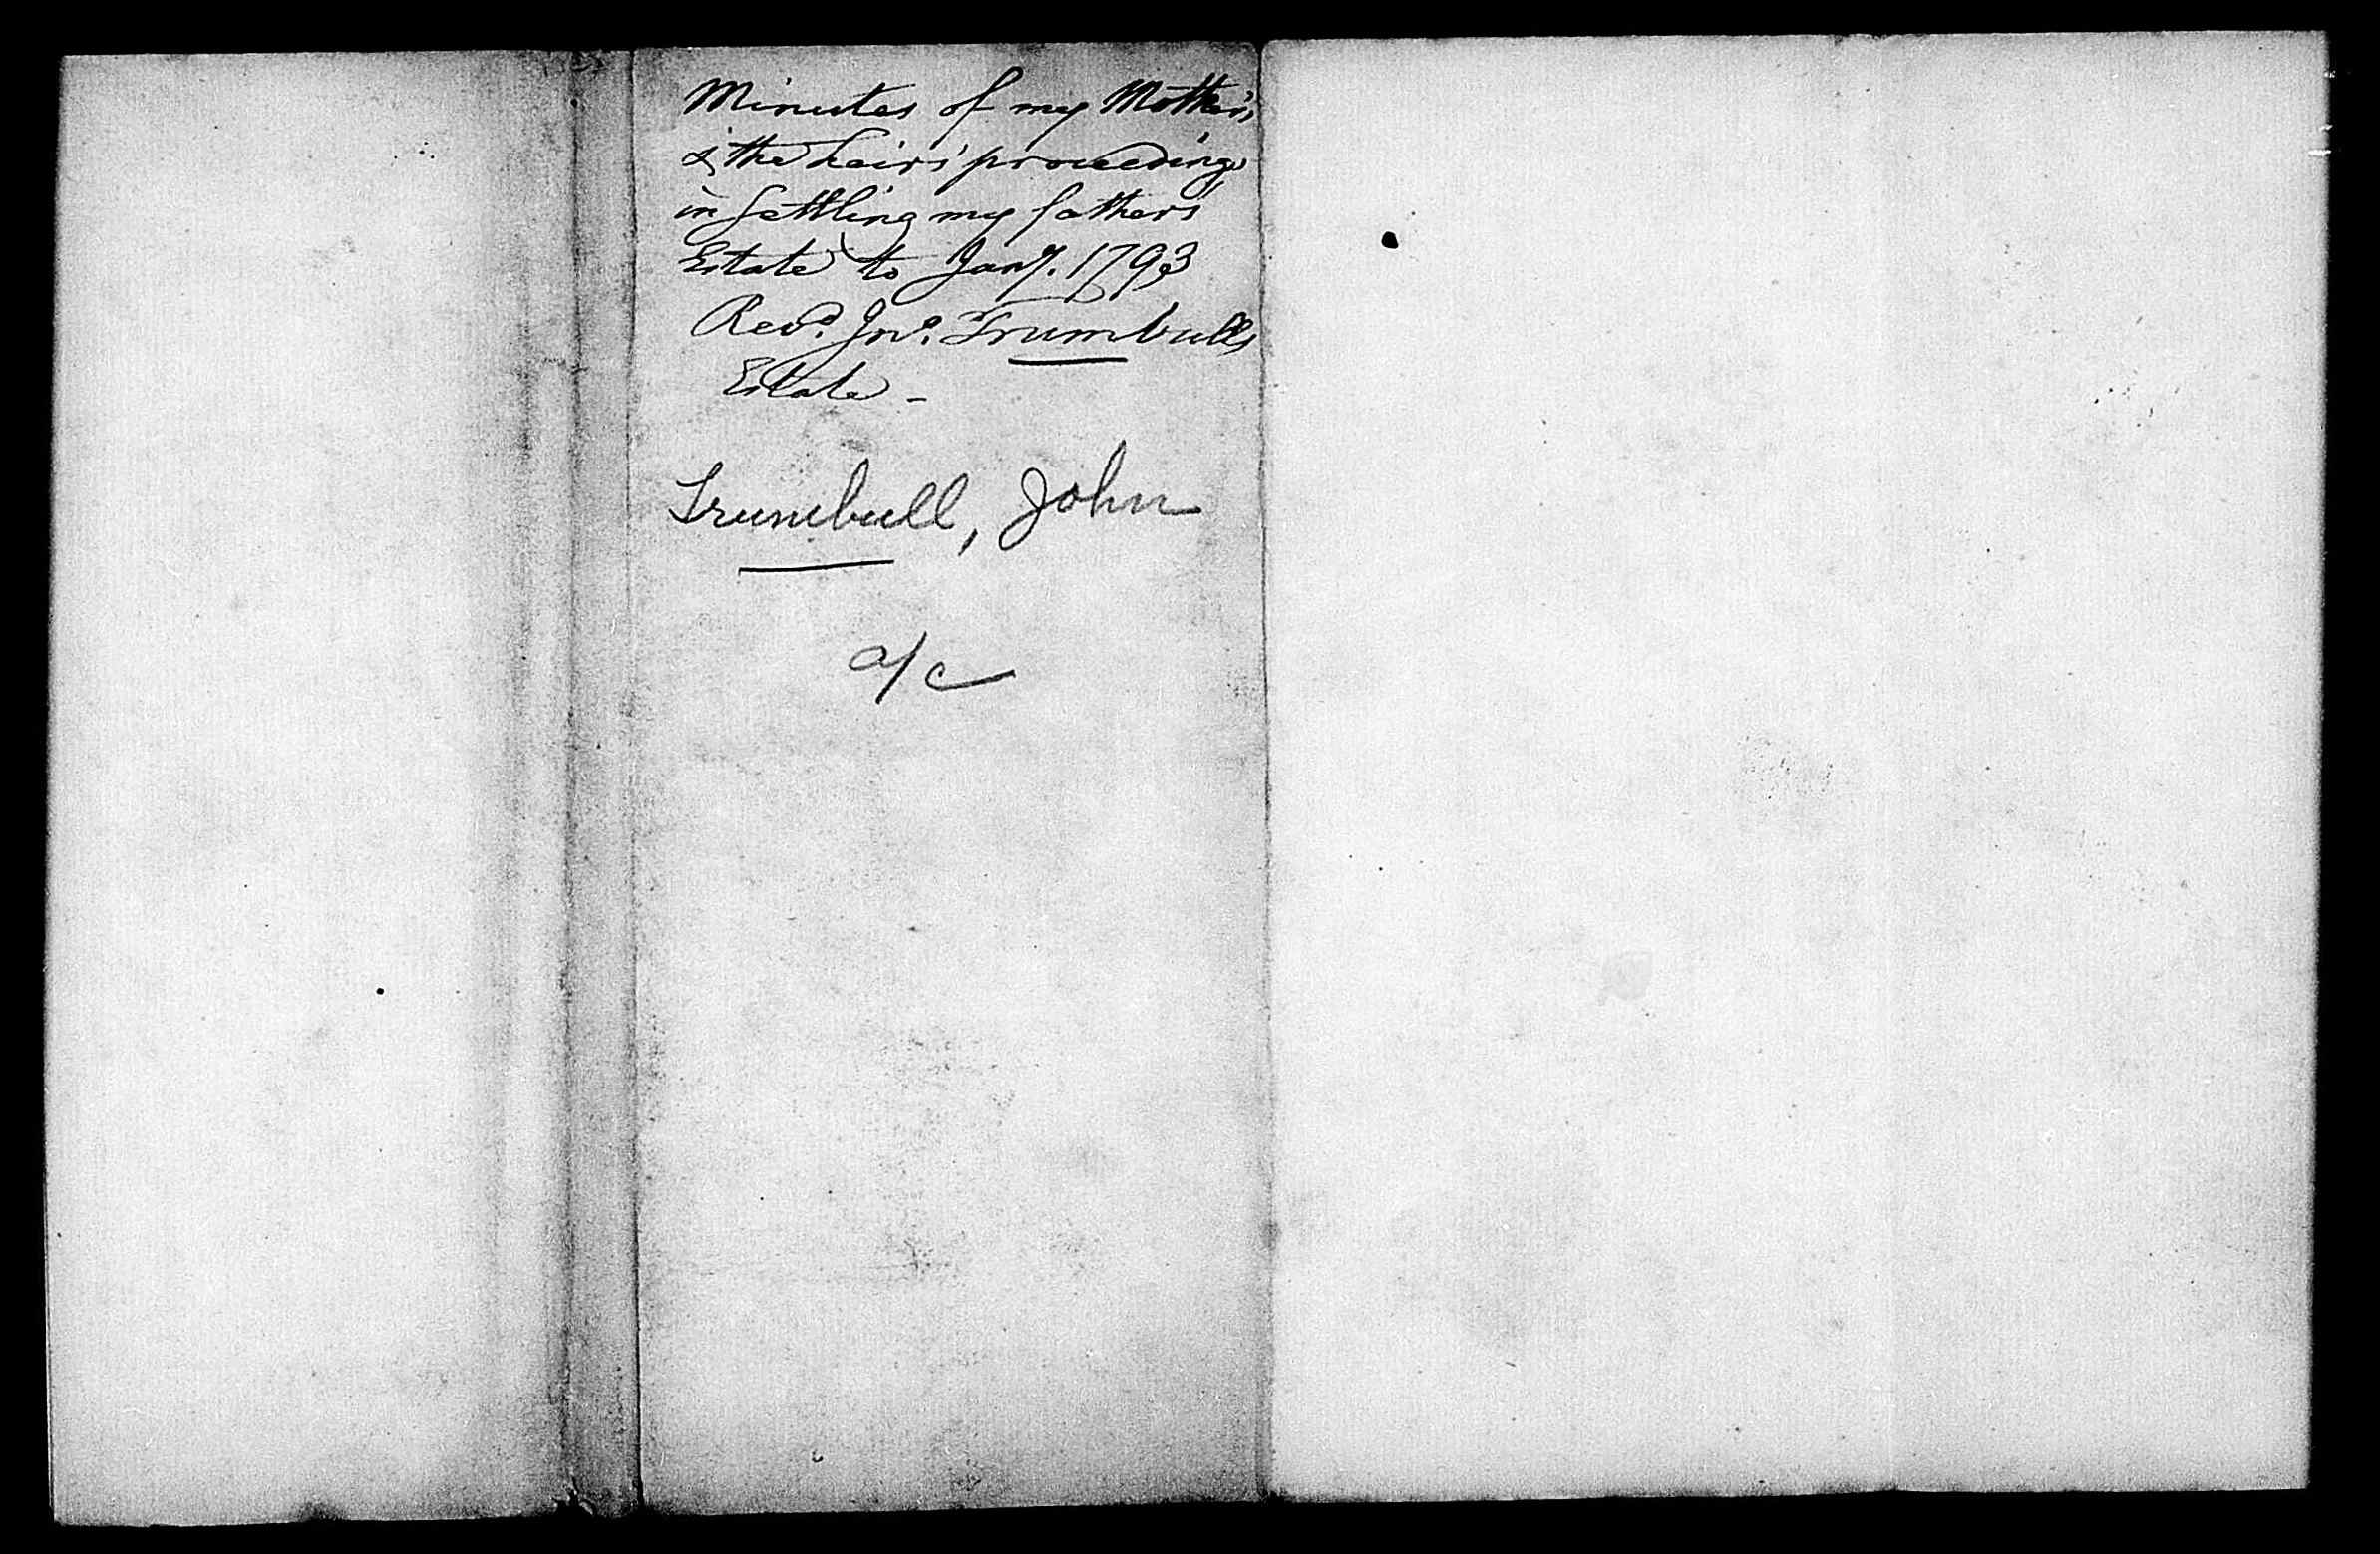 Minutes of my Mother's
& the heirs' proceedings
in settling my fathers'
Estate to Jany. 1793
Revd. Jno. Trumbulls
Estate -
Trumbull, John
a/c